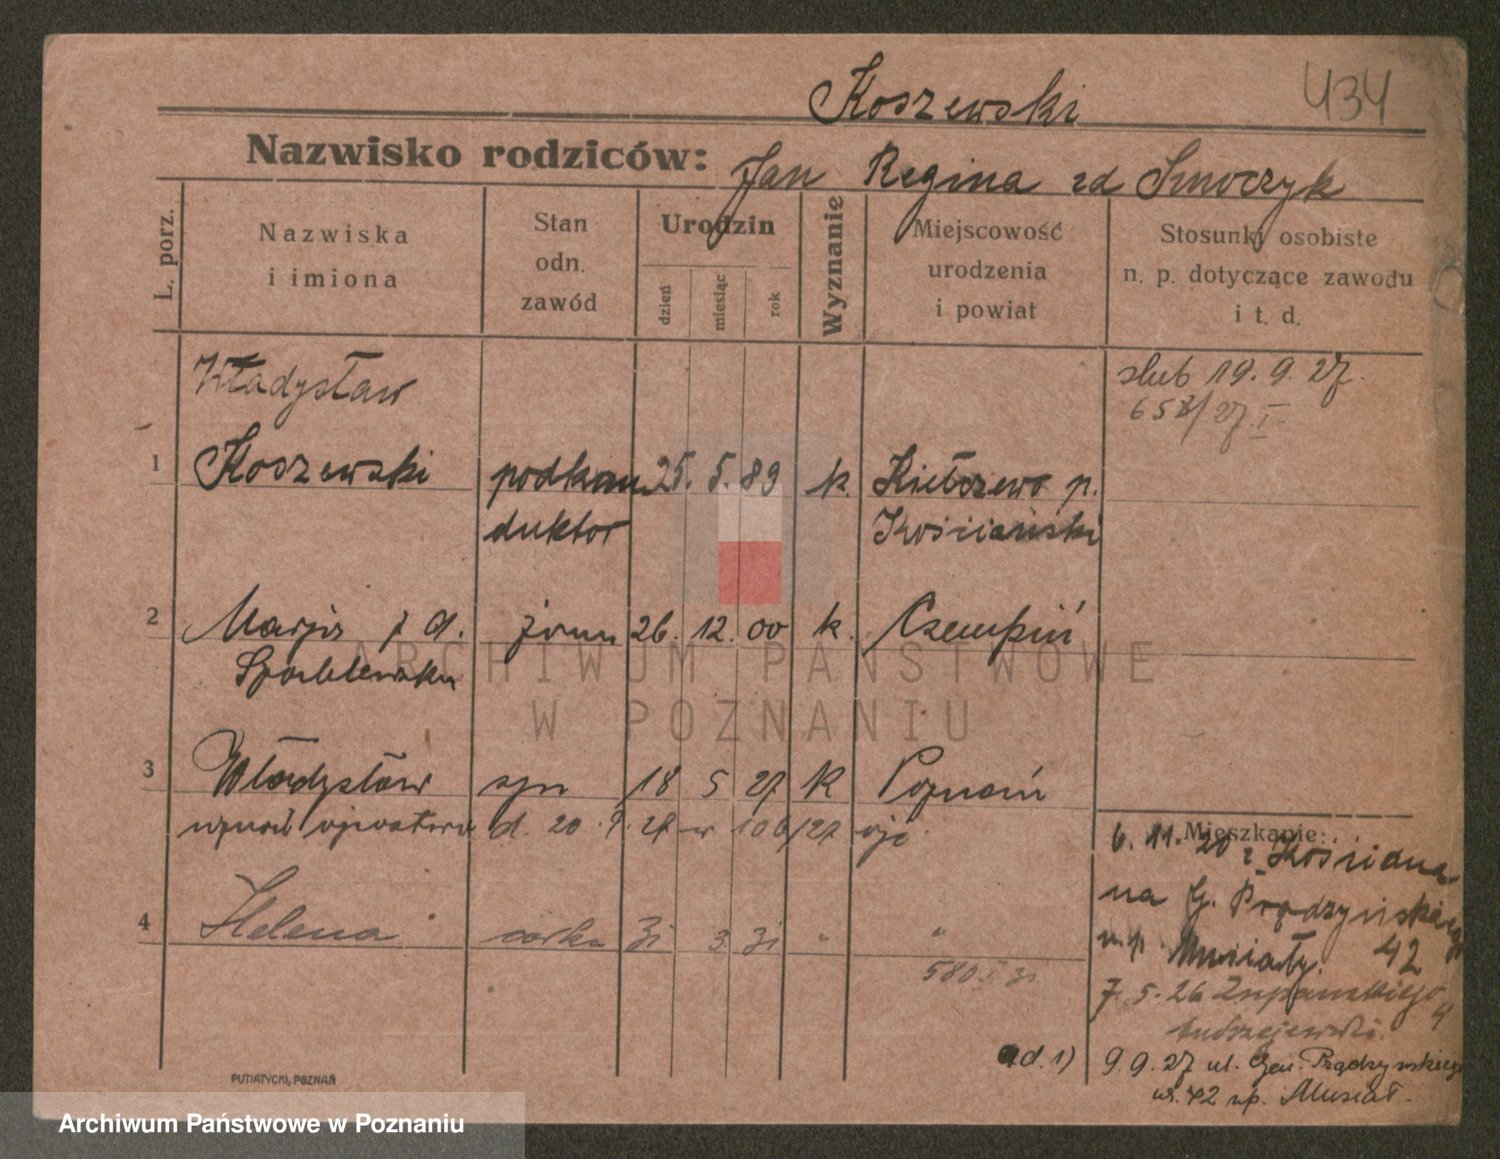 Koszewski
434
Nazwisko rodziców: Jan Regina zd Smoczyk
L. porz.
Nazwiska i imiona
Stan odn. zawód
Urodzin
dzień
miesiąc
rok
Wyznanie
Miejscowość urodzenia i powiat
Stosunki osobiste n. p. dotyczące zawodu i t. d.
Władysław
slub 19.9.27.
1 Koszewski podkon 25. 5. 89 k. Kiełczewo p.
duktor Kościański
2 Marja z d. żona 26. 12. 00 k. Czempiń
3 Władysław syn 18 5 27 k Poznań
d. 20. 9. 27
4 Helena córka 31 3 31 " "
580 I 31
Mieszkanie:
6. 11. 20 z Kościana
na G. Prądzyńskiego
42
7. 5. 26 Żupańskiego 4
Andrzejewski.
ad. 1) 9.9.27 ul. Gen. Prądzyńskiego
42 np. Musiał.
PUTIATYCKI, POZNAŃ
ARCHIWUM PAŃSTWOWE
W POZNANIU
Archiwum Państwowe w Poznaniu